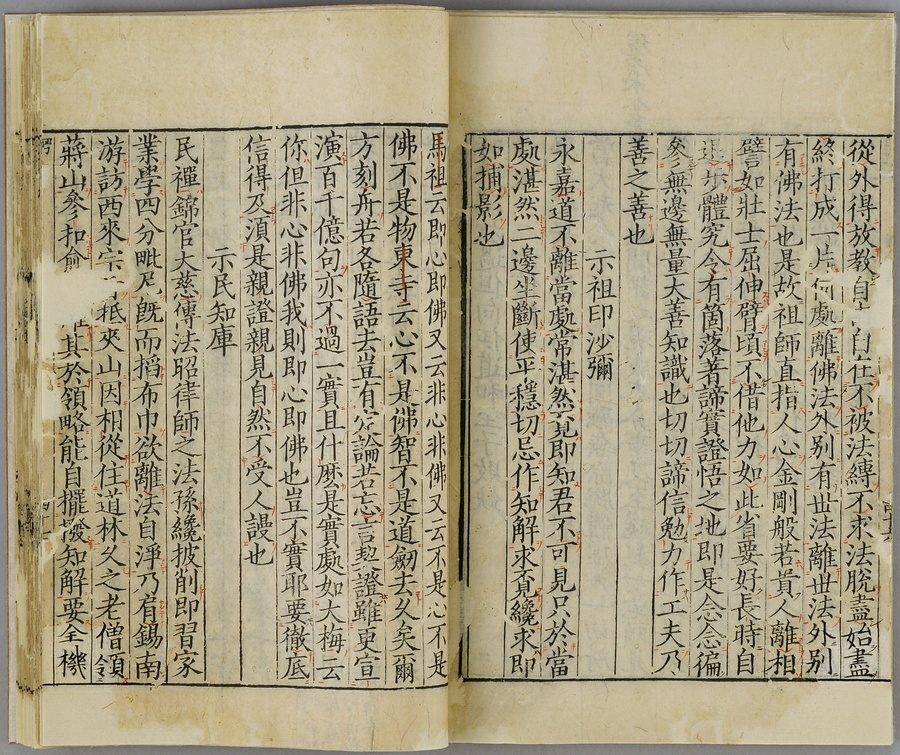 從外得放教自 自在不被法縛不求法脫盡始盡
終打成一片何處離佛法外別有世法離世法外別
有佛法也是故祖師直指人心金剛般若貴人離相
譬如壯士屈伸臂頃不借他力如此省要好長時自
退步體究令有箇落著諦實證悟之地即是念念徧
參無邊無量大善知識也切切諦信勉力作工夫乃
善之善也
示祖印沙彌
永嘉道不離當處常湛然覓即知君不可見只於當
處湛然二邊坐斷使平穩切忌作知解求覓纔求即
如捕影也
馬祖云即心即佛又云非心非佛又云不是心不是
佛不是物東寺云心不是佛智不是道劒去久矣爾
方刻舟若各隨語去豈有定論若忘言契證雖更宣
演百千億句亦不過一實且什麽是實處如大梅云
你但非心非佛我則即心即佛也豈不實耶要徹底
信得及須是親證親見自然不受人謾也
示民知庫
民禪錦官大慈傳法昭律師之法孫纔披削即習家
業學四分毗尼旣而搯布巾欲離法自淨乃肩錫南
游訪西來宗 抵夾山因相從住道林久之老僧領
蔣山參扣 其於領略能自擺撥知解要全機